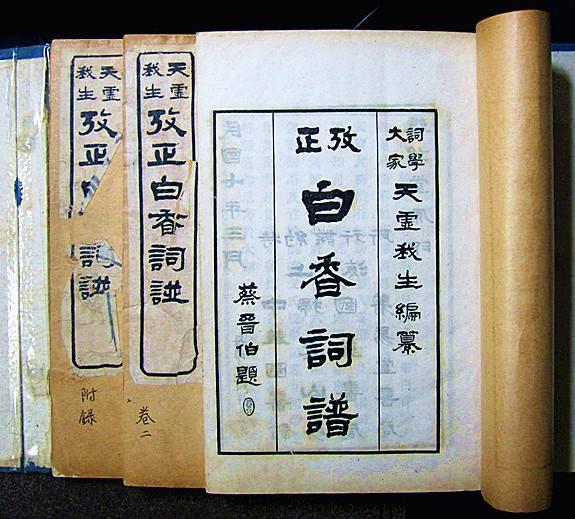 詞學大家
天虛我生編纂
攷正
白香詞譜
蔡晉伯題
天虛我生
攷正白香詞譜
卷二
天虛我生
攷正
詞譜
附錄